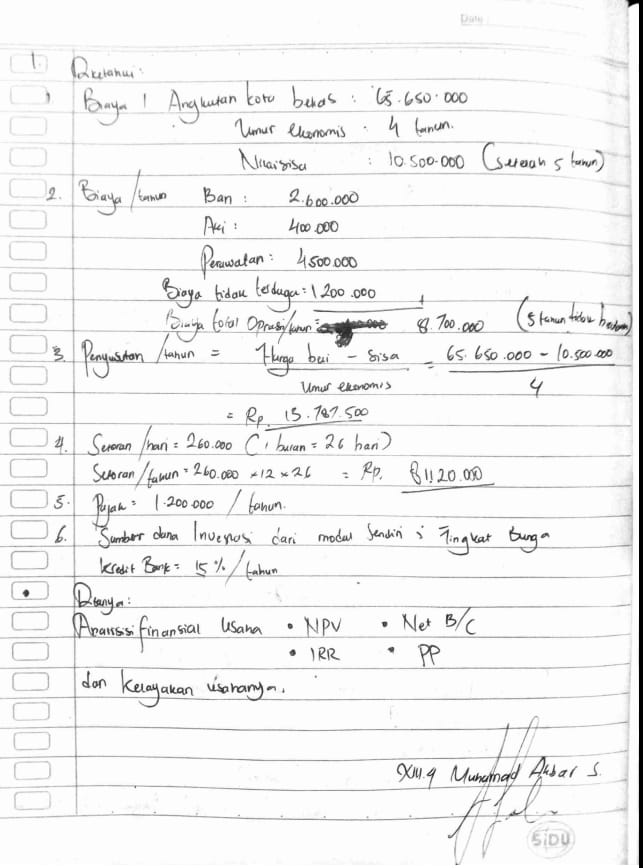 Date
1. Diketahui:
1 Biaya 1 Angkutan kota bekas : 65.650.000
Umur ekonomis : 4 tahun.
Nilai sisa : 10.500.000 (setelah 5 tahun)
2. Biaya / tahun Ban : 2.600.000
Aki : 400.000
Perawatan : 4500.000
Biaya tidak terduga : 1200.000 +
Biaya total Oprasi/tahun = 8.700.000 (5 tahun tidak berubah)
3. Penyusutan / tahun = Harga beli - sisa = 65.650.000 - 10.500.000
Umur ekonomis 4
= Rp. 13.787.500
4. Setoran / hari = 260.000 (1 bulan = 26 hari)
Setoran / tahun = 260.000 × 12 × 26 = Rp. 81.120.000
5. Pajak = 1.200.000 / tahun.
6. Sumber dana Investasi dari modal Sendiri ; Tingkat Bunga
kredit Bank = 15 % / tahun
• Ditanya :
Analisis finansial Usaha • NPV • Net B/C
• IRR • PP
dan kelayakan usahanya.
Muhamad Akbar S.
SiDU